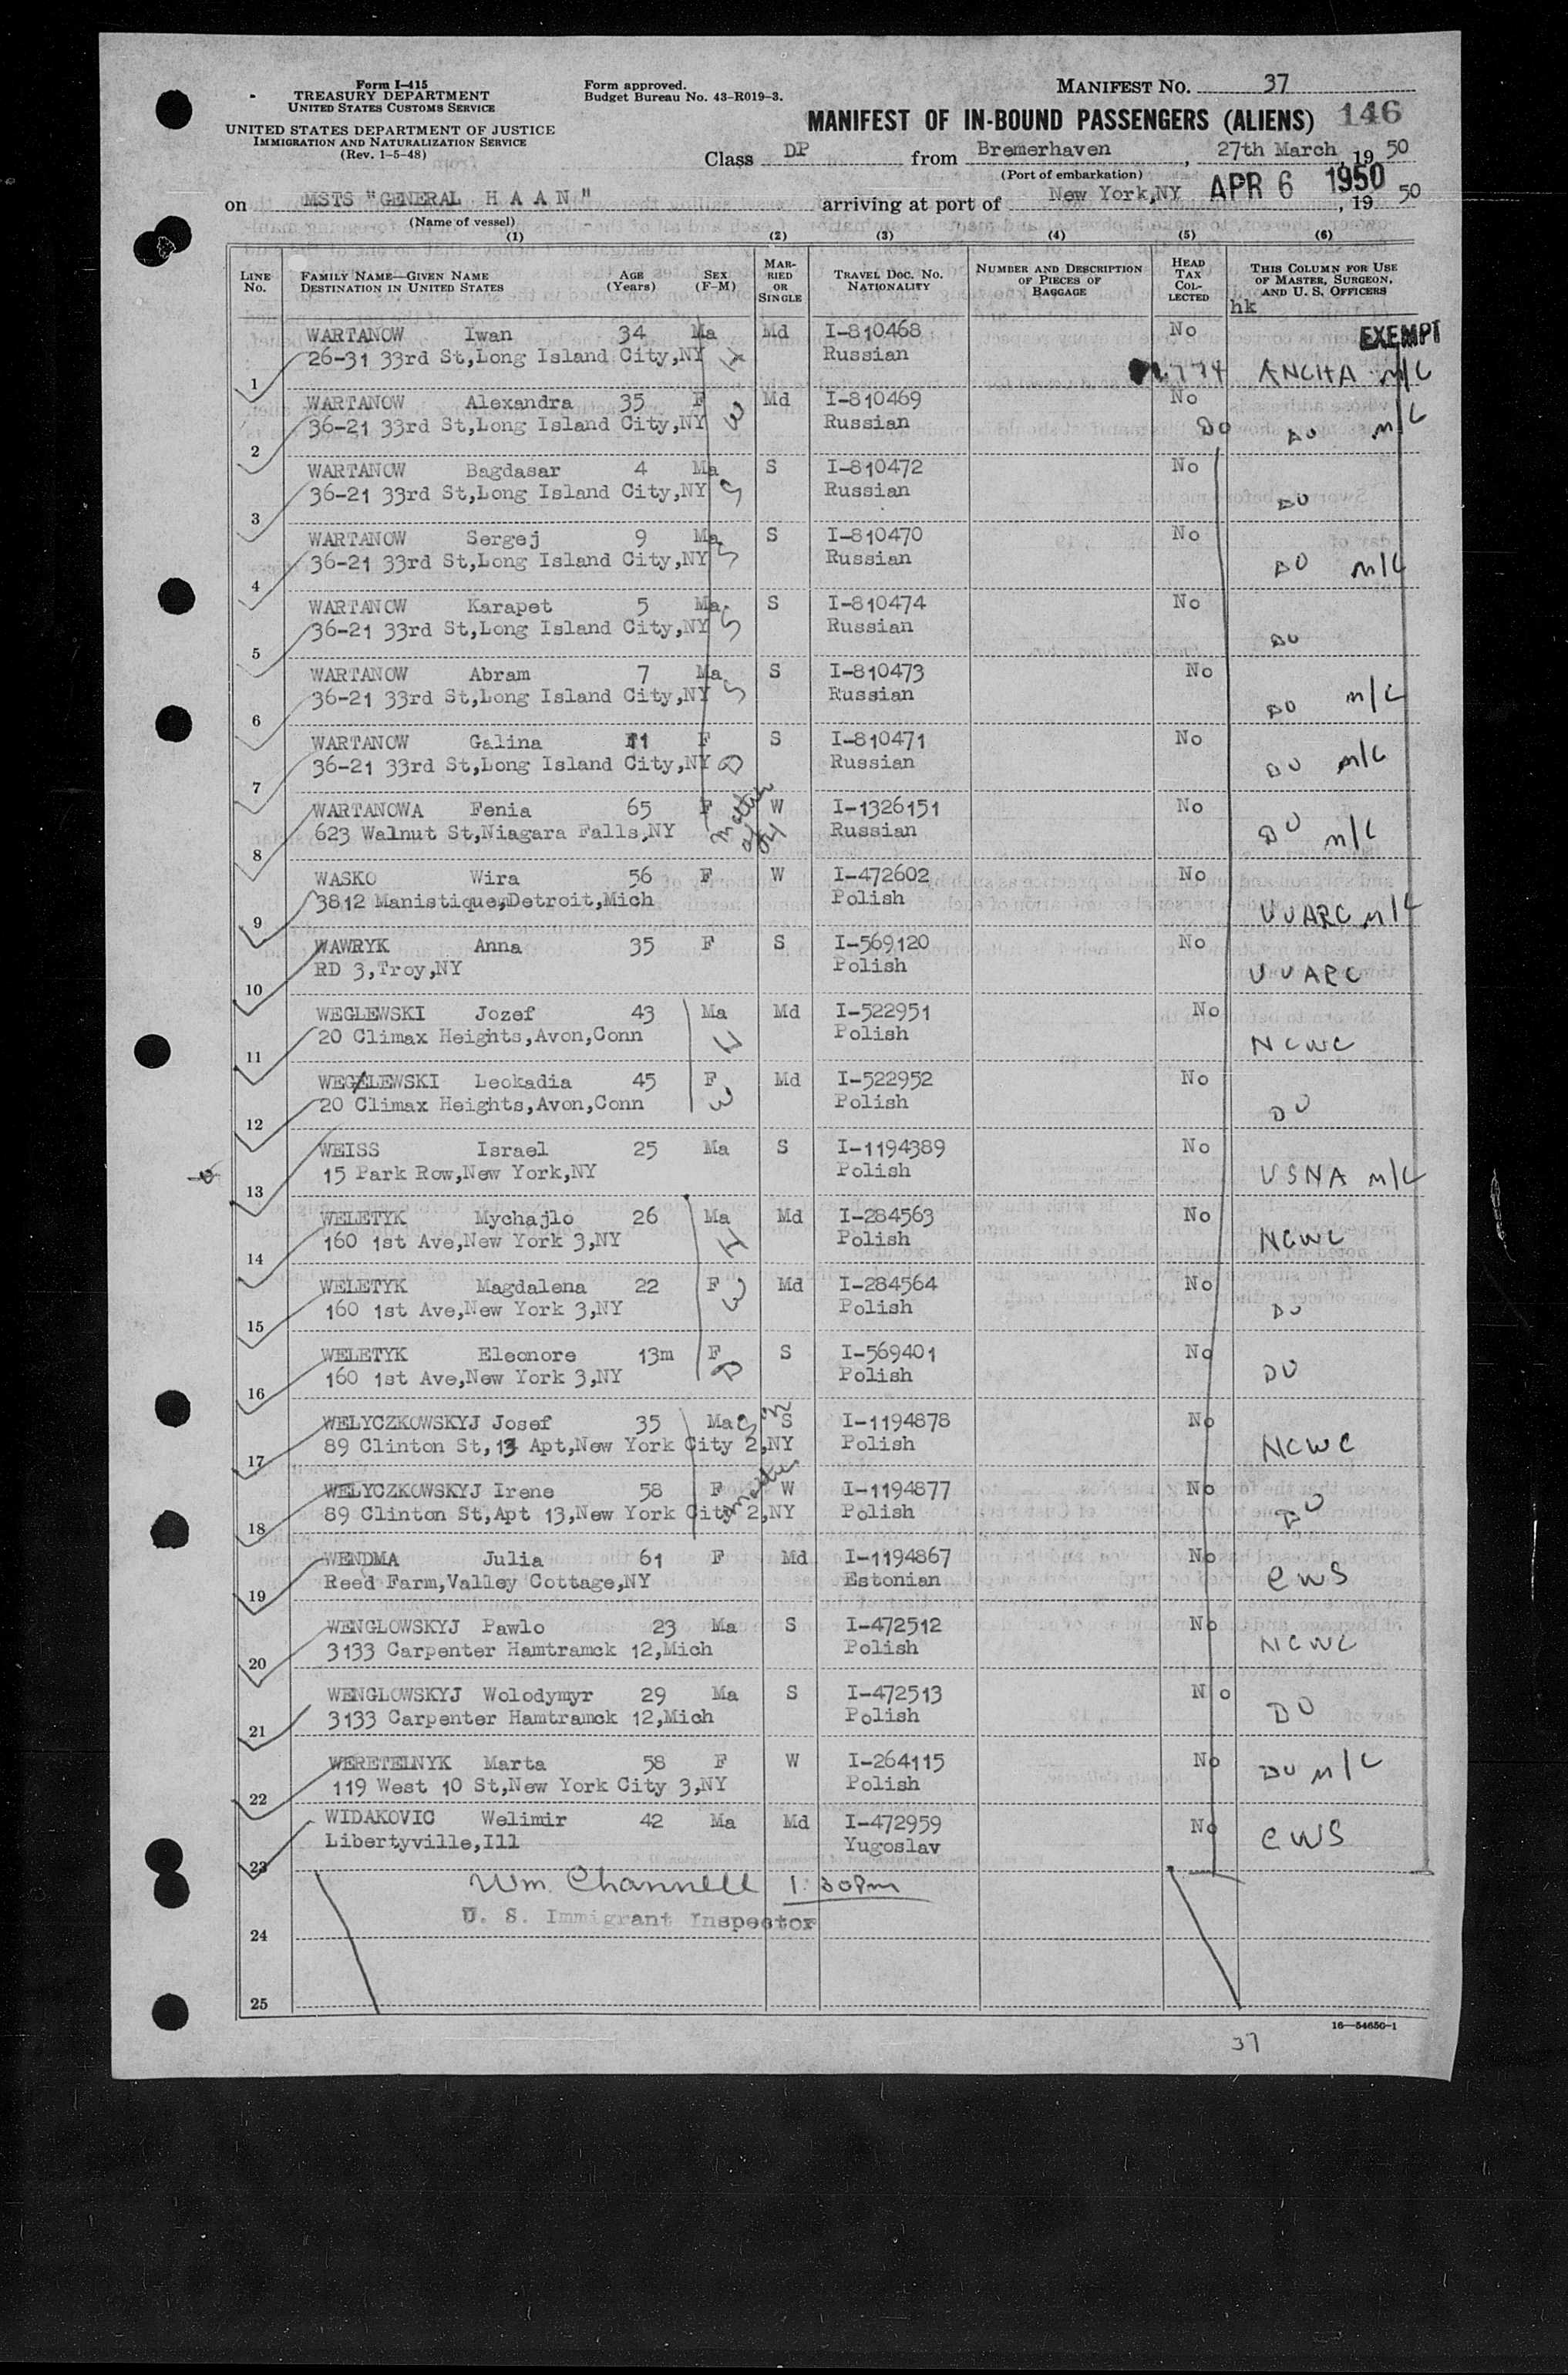 Form I-415
TREASURY DEPARTMENT
UNITED STATES CUSTOMS SERVICE
UNITED STATES DEPARTMENT OF JUSTICE
IMMIGRATION AND NATURALIZATION SERVICE
(Rev. 1-5-48)
Form approved.
Budget Bureau No. 43-R019-3.
MANIFEST NO. 37
MANIFEST OF IN-BOUND PASSENGERS (ALIENS) 146
Class DP from Bremerhaven, 27th March, 19 50
(Port of embarkation)
on MSTS "GENERAL H A A N" arriving at port of New York,NY APR 6 1950, 19 50
(Name of vessel)
(1) (2) (3) (4) (5) (6)
LINE NO. FAMILY NAME—GIVEN NAME DESTINATION IN UNITED STATES AGE (Years) SEX (F-M) MARRIED OR SINGLE TRAVEL DOC. NO. NATIONALITY NUMBER AND DESCRIPTION OF PIECES OF BAGGAGE HEAD TAX COLLECTED THIS COLUMN FOR USE OF MASTER, SURGEON, AND U. S. OFFICERS
hk
EXEMPT
WARTANOW Iwan 34 Ma Md I-810468 No
1 26-31 33rd St,Long Island City,NY H Russian ANCHA M/C
WARTANOW Alexandra 35 F Md I-810469 No
2 36-21 33rd St,Long Island City,NY W Russian Do DO M/C
WARTANOW Bagdasar 4 Ma S I-810472 No
3 36-21 33rd St,Long Island City,NY S Russian DO
WARTANOW Sergej 9 Ma S I-810470 No
4 36-21 33rd St,Long Island City,NY S Russian DO M/C
WARTANOW Karapet 5 Ma S I-810474 No
5 36-21 33rd St,Long Island City,NY S Russian DO
WARTANOW Abram 7 Ma S I-810473 No
6 36-21 33rd St,Long Island City,NY S Russian DO M/C
WARTANOW Galina 11 F S I-810471 No
7 36-21 33rd St,Long Island City,NY D Russian DO M/C
WARTANOWA Fenia 65 F W I-1326151 No
8 623 Walnut St,Niagara Falls,NY Mother of Russian DO M/C
WASKO Wira 56 F W I-472602 No
9 3812 Manistique,Detroit,Mich Polish UUARC M/C
WAWRYK Anna 35 F S I-569120 No
10 RD 3,Troy,NY Polish UUARC
WEGLEWSKI Jozef 43 Ma Md I-522951 No
11 20 Climax Heights,Avon,Conn H Polish NCWC
WEGLEWSKI Leokadia 45 F Md I-522952 No
12 20 Climax Heights,Avon,Conn W Polish DO
WEISS Israel 25 Ma S I-1194389 No
13 15 Park Row,New York,NY Polish USNA M/C
WELETYK Mychajlo 26 Ma Md I-284563 No
14 160 1st Ave,New York 3,NY H Polish NCWC
WELETYK Magdalena 22 F Md I-284564 No
15 160 1st Ave,New York 3,NY W Polish DO
WELETYK Eleonore 13m F S I-569401 No
16 160 1st Ave,New York 3,NY D Polish DO
WELYCZKOWSKYJ Josef 35 Ma Son S I-1194878 No
17 89 Clinton St,13 Apt,New York City 2,NY Polish NCWC
WELYCZKOWSKYJ Irene 58 F Mother W I-1194877 No
18 89 Clinton St,Apt 13,New York City 2,NY Polish DO
WENDMA Julia 61 F Md I-1194867 No
19 Reed Farm,Valley Cottage,NY Estonian CWS
WENGLOWSKYJ Pawlo 23 Ma S I-472512 No
20 3133 Carpenter Hamtramck 12,Mich Polish NCWC
WENGLOWSKYJ Wolodymyr 29 Ma S I-472513 No
21 3133 Carpenter Hamtramck 12,Mich Polish DO
WERETELNYK Marta 58 F W I-264115 No
22 119 West 10 St,New York City 3,NY Polish DO M/C
WIDAKOVIC Welimir 42 Ma Md I-472959 No
23 Libertyville,Ill Yugoslav CWS
Wm. Channell 1:30Pm
U. S. Immigrant Inspector
24
25
16—54650-1
37